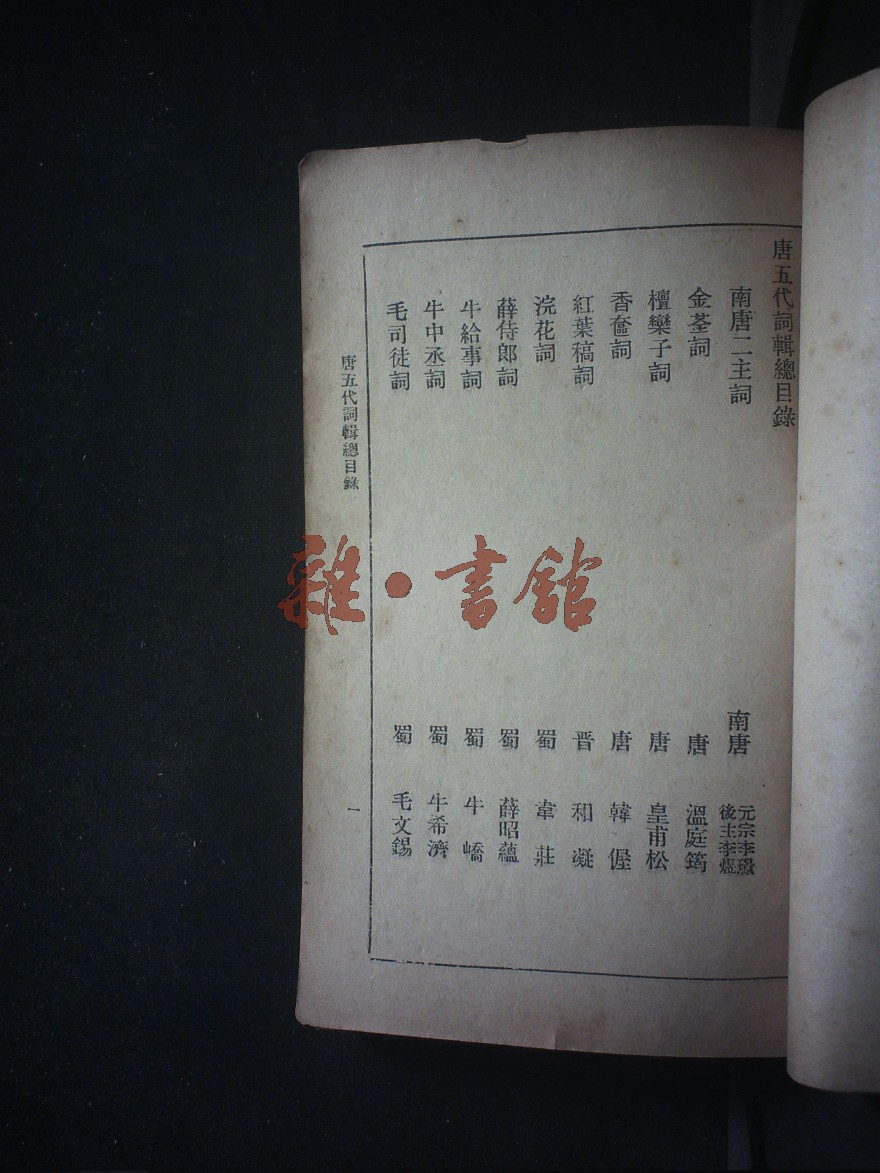 唐五代詞輯總目錄
南唐二主詞 南唐 元宗李璟 後主李煜
金荃詞 唐 溫庭筠
檀欒子詞 唐 皇甫松
香奩詞 唐 韓偓
紅葉稿詞 晋 和凝
浣花詞 蜀 韋莊
薛侍郎詞 蜀 薛昭蘊
牛給事詞 蜀 牛嶠
牛中丞詞 蜀 牛希濟
毛司徒詞 蜀 毛文錫
唐五代詞輯總目錄 一
雜·書館